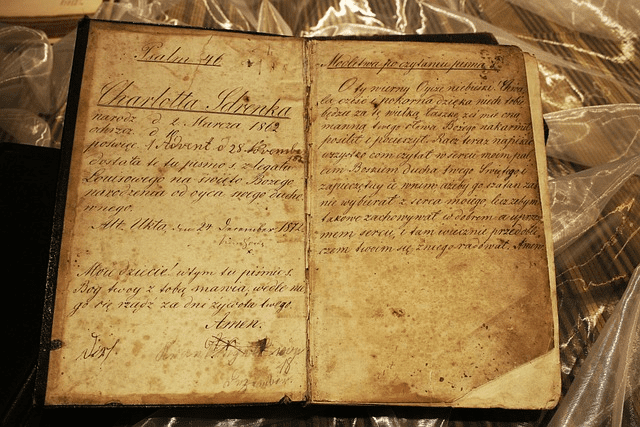 Psalm 46
Charlotta Jdrenka
narodz. d. 2. Marca 1862
ochrzc. d.
poswięc. 1. Advent d 28 Novembr
dostała te tu pismo s. z legatu
Louisowego na święto Bożego
narodzenia od oyca swegoducho
wnego.
Alt Ukta, den 24 December 1872
Mou dziecie! w tym tu pismie s.
Bog twoy z tobą mawia, wedle nie
go się rządz za dni żywota twego.
Amen.
Modlitwa po czytaniu pisma S.
O ty wierny Oycze niebieski! Chwa
ła, cześć i pokorna dzięka niech tobie
będzie za tę wielką łaskę, żeś mą
manną twego słowa Bożego nakarmił
posilił i pocieszył. Racz teraz napisać
wszystko com czytał w sercu moim pal
cem Boskim Ducha Swego Swiętego i
zapieczętuj je w nim ażeby go szatan zaś
nie wybierał z serca moiego, lecz żebym
takowe zachowywał w dobrem a uprzy
mem sercu, i tam wiecznie przed obli
czem twoim się z niego radował. Amen.